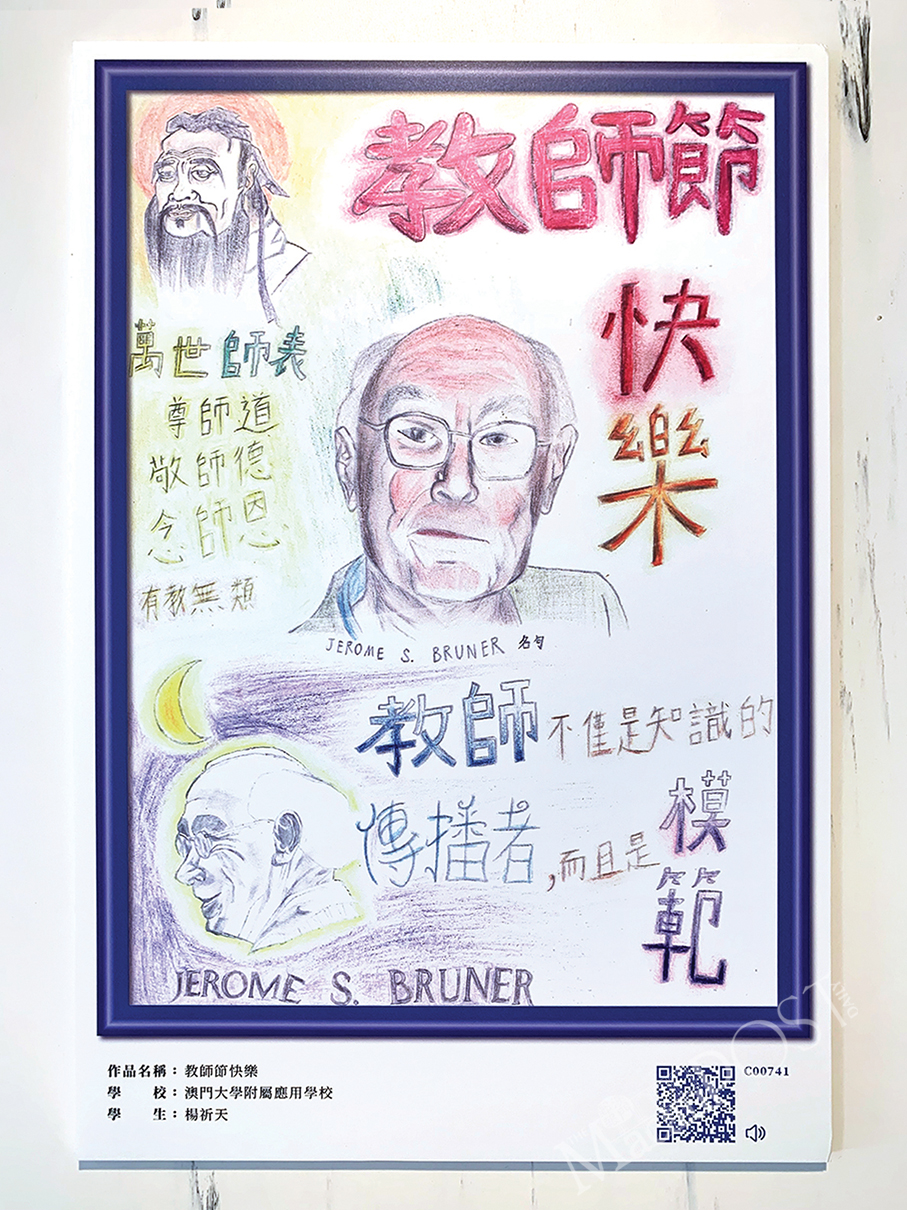 教師節
快
樂
萬世師表
尊師道
敬師德
念師恩
有教無類
JEROME S. BRUNER 名句
教師不僅是知識的
傳播者,而且是模
範
JEROME S. BRUNER
作品名稱：教師節快樂
學　　校：澳門大學附屬應用學校
學　　生：楊祈天
C00741